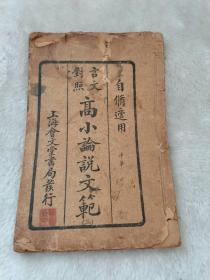 自修適用
言文對照
高小論說文範
上海會文堂書局發行